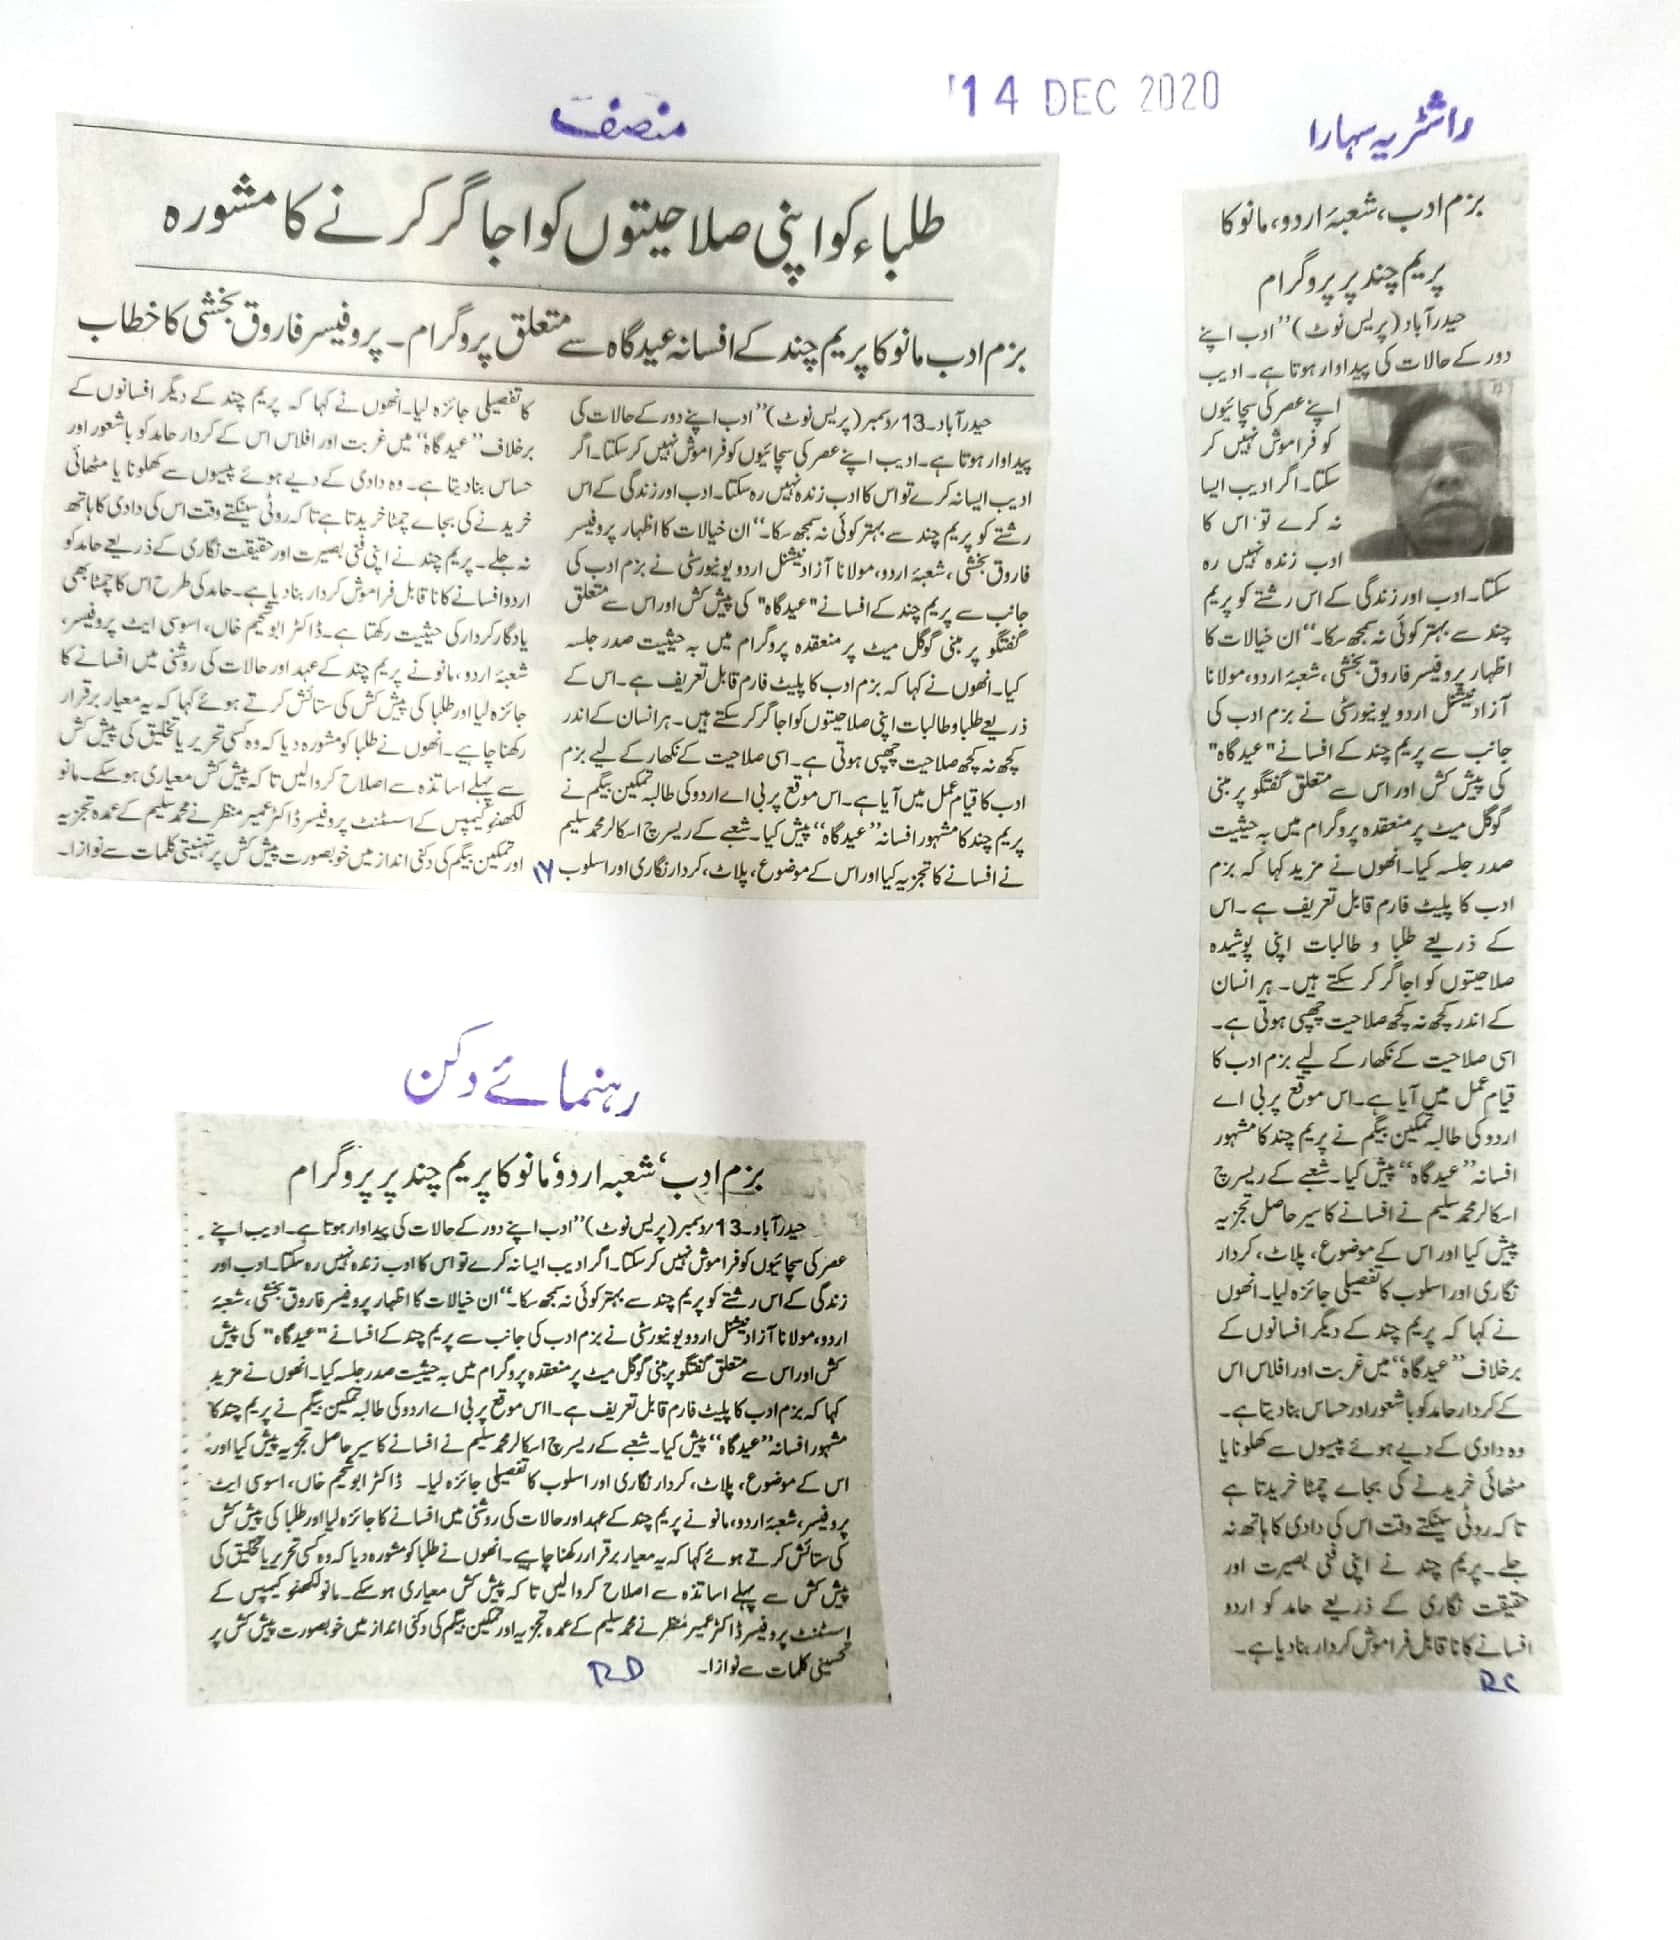 14 DEC 2020
منصف
طلباء کو اپنی صلاحیتوں کو اجاگر کرنے کا مشورہ
بزم ادب مانو کا پریم چند کے افسانہ عیدگاہ سے متعلق پروگرام۔ پروفیسر فاروق بخشی کا خطاب
حیدرآباد۔13؍دسمبر (پریس نوٹ) ’’ادب اپنے دور کے حالات کی
پیداوار ہوتا ہے۔ ادیب اپنے عصر کی سچائیوں کو فراموش نہیں کرسکتا۔ اگر
ادیب ایسا نہ کرے تو اس کا ادب زندہ نہیں رہ سکتا۔ ادب اور زندگی کے اس
رشتے کو پریم چند سے بہتر کوئی نہ سمجھ سکا۔‘‘ ان خیالات کا اظہار پروفیسر
فاروق بخشی، شعبۂ اردو، مولانا آزاد نیشنل اردو یونیورسٹی نے بزم ادب کی
جانب سے پریم چند کے افسانے "عیدگاہ" کی پیش کش اور اس سے متعلق
گفتگو پر مبنی گوگل میٹ پر منعقدہ پروگرام میں بہ حیثیت صدر جلسہ
کیا۔ انھوں نے کہا کہ بزم ادب کا پلیٹ فارم قابل تعریف ہے۔ اس کے
ذریعے طلبا و طالبات اپنی صلاحیتوں کو اجاگر کرسکتے ہیں۔ ہر انسان کے اندر
کچھ نہ کچھ صلاحیت چھپی ہوتی ہے۔ اسی صلاحیت کے نکھار کے لیے بزم
ادب کا قیام عمل میں آیا ہے۔ اس موقع پر بی اے اردو کی طالبہ تمکین بیگم نے
پریم چند کا مشہور افسانہ ’’عیدگاہ‘‘ پیش کیا۔ شعبے کے ریسرچ اسکالر محمد سلیم
نے افسانے کا تجزیہ کیا اور اس کے موضوع، پلاٹ، کردار نگاری اور اسلوب
کا تفصیلی جائزہ لیا۔ انھوں نے کہا کہ پریم چند کے دیگر افسانوں کے
برخلاف ’’عیدگاہ‘‘ میں غربت اور افلاس اس کے کردار حامد کو باشعور اور
حساس بنا دیتا ہے۔ وہ دادی کے دیے ہوئے پیسوں سے کھلونا یا مٹھائی
خریدنے کی بجاے چمٹا خریدتا ہے تاکہ روٹی سینکتے وقت اس کی دادی کا ہاتھ
نہ جلے۔ پریم چند نے اپنی فنی بصیرت اور حقیقت نگاری کے ذریعے حامد کو
اردو افسانے کا ناقابل فراموش کردار بنا دیا ہے۔ حامد کی طرح اس کا چمٹا بھی
یادگار کردار کی حیثیت رکھتا ہے۔ ڈاکٹر ابو شحیم خاں، اسوسی ایٹ پروفیسر،
شعبۂ اردو، مانو نے پریم چند کے عہد اور حالات کی روشنی میں افسانے کا
جائزہ لیا اور طلبا کی پیش کش کی ستائش کرتے ہوئے کہا کہ یہ معیار برقرار
رکھنا چاہیے۔ انھوں نے طلبا کو مشورہ دیا کہ وہ کسی تحریر یا تخلیق کی پیش کش
سے پہلے اساتذہ سے اصلاح کروالیں تاکہ پیش کش معیاری ہوسکے۔ مانو
لکھنؤ کیمپس کے اسسٹنٹ پروفیسر ڈاکٹر عمیر منظر نے محمد سلیم کے عمدہ تجزیہ
اور تمکین بیگم کی دکنی انداز میں خوبصورت پیش کش پر تہنیتی کلمات سے نوازا۔
راشٹریہ سہارا
بزم ادب، شعبۂ اردو، مانو کا
پریم چند پر پروگرام
حیدرآباد (پریس نوٹ) ’’ادب اپنے
دور کے حالات کی پیداوار ہوتا ہے۔ ادیب
اپنے عصر کی سچائیوں
کو فراموش نہیں کر
سکتا۔ اگر ادیب ایسا
نہ کرے تو اس کا
ادب زندہ نہیں رہ
سکتا۔ ادب اور زندگی کے اس رشتے کو پریم
چند سے بہتر کوئی نہ سمجھ سکا۔‘‘ ان خیالات کا
اظہار پروفیسر فاروق بخشی، شعبۂ اردو، مولانا
آزاد نیشنل اردو یونیورسٹی نے بزم ادب کی
جانب سے پریم چند کے افسانے "عیدگاہ"
کی پیش کش اور اس سے متعلق گفتگو پر مبنی
گوگل میٹ پر منعقدہ پروگرام میں بہ حیثیت
صدر جلسہ کیا۔ انھوں نے مزید کہا کہ بزم
ادب کا پلیٹ فارم قابل تعریف ہے۔ اس
کے ذریعے طلبا و طالبات اپنی پوشیدہ
صلاحیتوں کو اجاگر کر سکتے ہیں۔ ہر انسان
کے اندر کچھ نہ کچھ صلاحیت چھپی ہوتی ہے۔
اسی صلاحیت کے نکھار کے لیے بزم ادب کا
قیام عمل میں آیا ہے۔ اس موقع پر بی اے
اردو کی طالبہ تمکین بیگم نے پریم چند کا مشہور
افسانہ ’’عیدگاہ‘‘ پیش کیا۔ شعبے کے ریسرچ
اسکالر محمد سلیم نے افسانے کا سیر حاصل تجزیہ
پیش کیا اور اس کے موضوع، پلاٹ، کردار
نگاری اور اسلوب کا تفصیلی جائزہ لیا۔ انھوں
نے کہا کہ پریم چند کے دیگر افسانوں کے
برخلاف ’’عیدگاہ‘‘ میں غربت اور افلاس اس
کے کردار حامد کو باشعور اور حساس بنا دیتا ہے۔
وہ دادی کے دیے ہوئے پیسوں سے کھلونا یا
مٹھائی خریدنے کی بجاے چمٹا خریدتا ہے
تاکہ روٹی سینکتے وقت اس کی دادی کا ہاتھ نہ
جلے۔ پریم چند نے اپنی فنی بصیرت اور
حقیقت نگاری کے ذریعے حامد کو اردو
افسانے کا ناقابل فراموش کردار بنا دیا ہے۔
RS
رہنمائے دکن
بزم ادب‘ شعبہ اردو‘ مانو کا پریم چند پر پروگرام
حیدرآباد۔13؍دسمبر (پریس نوٹ) ’’ادب اپنے دور کے حالات کی پیداوار ہوتا ہے۔ ادیب اپنے
عصر کی سچائیوں کو فراموش نہیں کرسکتا۔ اگر ادیب ایسا نہ کرے تو اس کا ادب زندہ نہیں رہ سکتا۔ ادب اور
زندگی کے اس رشتے کو پریم چند سے بہتر کوئی نہ سمجھ سکا۔‘‘ ان خیالات کا اظہار پروفیسر فاروق بخشی، شعبۂ
اردو، مولانا آزاد نیشنل اردو یونیورسٹی نے بزم ادب کی جانب سے پریم چند کے افسانے "عیدگاہ" کی پیش
کش اور اس سے متعلق گفتگو پر مبنی گوگل میٹ پر منعقدہ پروگرام میں بہ حیثیت صدر جلسہ کیا۔ انھوں نے مزید
کہا کہ بزم ادب کا پلیٹ فارم قابل تعریف ہے۔ ااس موقع پر بی اے اردو کی طالبہ تمکین بیگم نے پریم چند کا
مشہور افسانہ ’’عیدگاہ‘‘ پیش کیا۔ شعبے کے ریسرچ اسکالر محمد سلیم نے افسانے کا سیر حاصل تجزیہ پیش کیا اور
اس کے موضوع، پلاٹ، کردار نگاری اور اسلوب کا تفصیلی جائزہ لیا۔ ڈاکٹر ابو شحیم خاں، اسوسی ایٹ
پروفیسر، شعبۂ اردو، مانو نے پریم چند کے عہد اور حالات کی روشنی میں افسانے کا جائزہ لیا اور طلبا کی پیش کش
کی ستائش کرتے ہوئے کہا کہ یہ معیار برقرار رکھنا چاہیے۔ انھوں نے طلبا کو مشورہ دیا کہ وہ کسی تحریر یا تخلیق کی
پیش کش سے پہلے اساتذہ سے اصلاح کروالیں تاکہ پیش کش معیاری ہوسکے۔ مانو لکھنؤ کیمپس کے
اسسٹنٹ پروفیسر ڈاکٹر عمیر منظر نے محمد سلیم کے عمدہ تجزیہ اور تمکین بیگم کی دکنی انداز میں خوبصورت پیش کش پر
تحسینی کلمات سے نوازا۔
RD